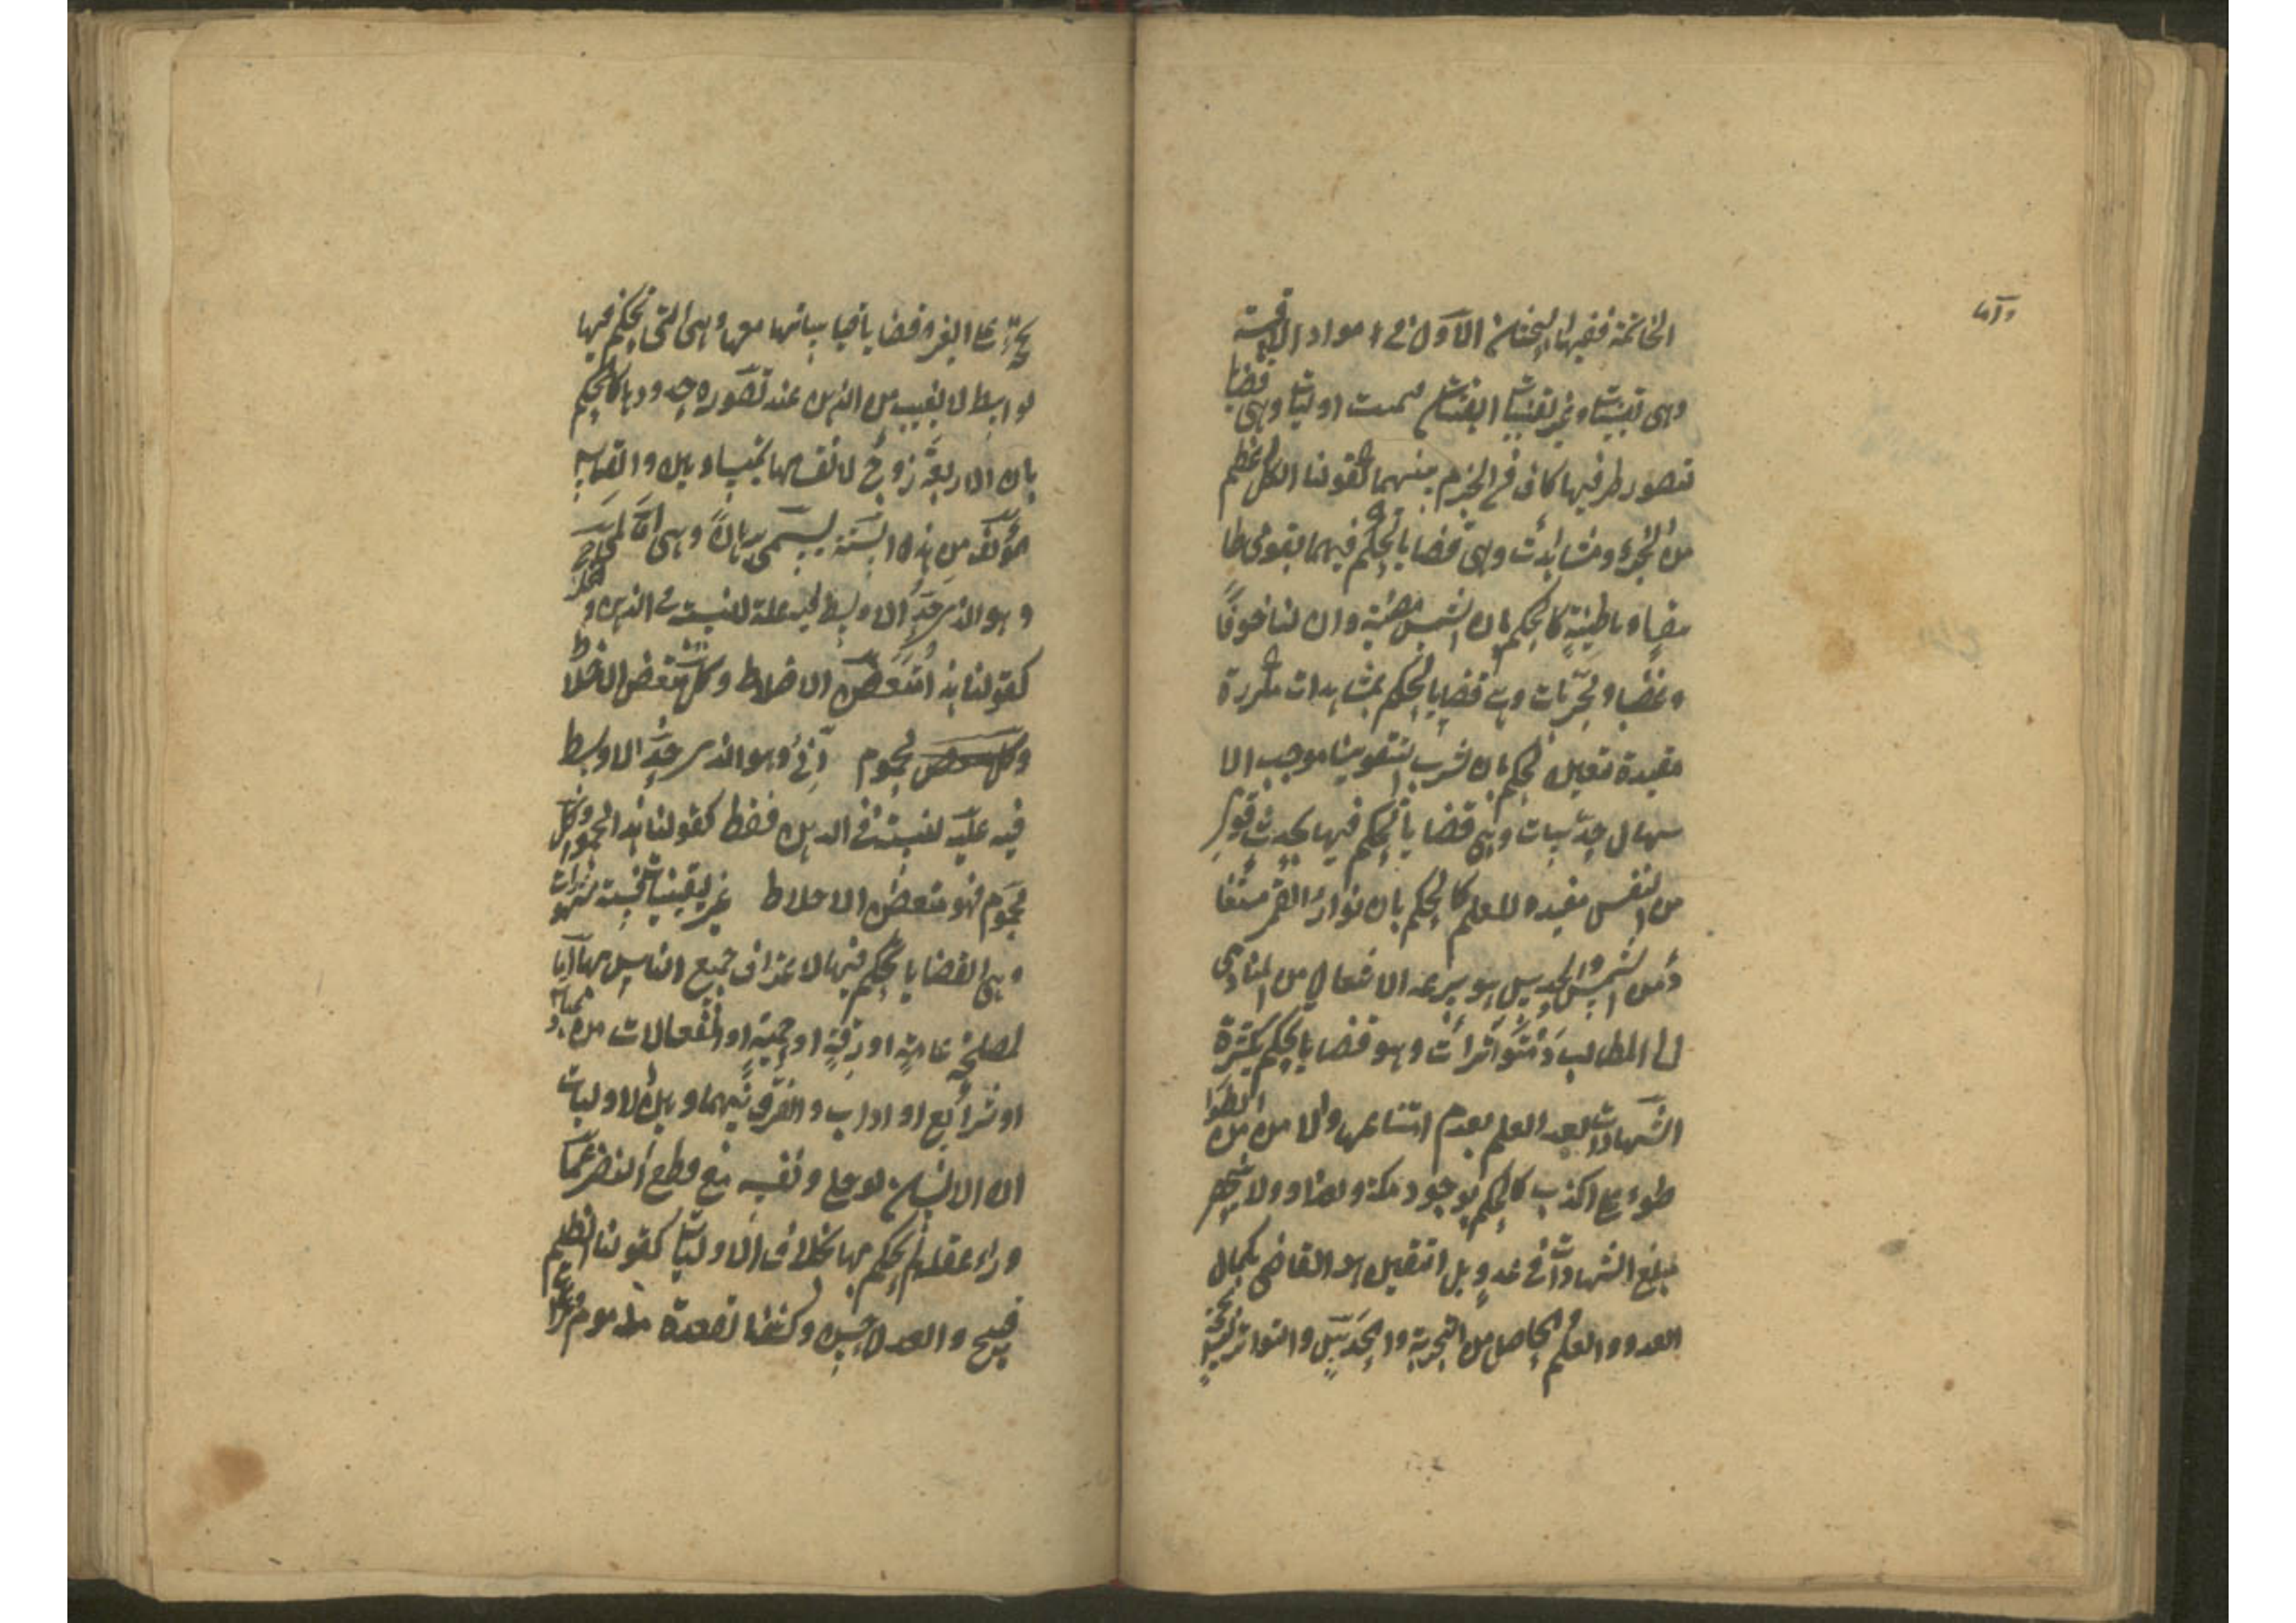 واما
الخاتمة ففيها بحثان الاول في مواد الاقيسة
وهى يقينيات وغير يقينيات اليقينيات فست اوليات وهى قضايا
تصور طرفيها كاف فى الجزم بينهما كقولنا الكل اعظم
من الجزء ومشاهدات وهى قضايا يحكم فيهما بقوى ظا
هرة او باطنية كالحكم بان الشمس مضيئة وان لنا خوفًا
وغضبا ومجربات وهى قضايا يحكم بمشاهدات متكررة
مفيدة تعين كحكم بان شرب السقمونيا موجب الا
سهال حدسيات وهى قضايا يحكم فيها بحدث قوى
من النفس مفيد للعلم كالحكم بان نوار القمر مستفا
د من الشمس والحدس هو سرعة الانتعال من المبادى
الى المطالب ومتواترات وهو قضايا يحكم بكثرة
الشهادات بعد العلم بعدم امتناعها والامن من التوا
طؤ على الكذب كالحكم بوجود مكة وبغداد ولا ينحصر
مبلغ الشهادات فى عدد بل اليقين هو القاضى بكمال
العدد والعلم الحاصل من التجربة والحدس والتواتر ليس
بحجة على الغير وقضايا قياساتها معها وهى التى يحكم فيها
لواسط لا يغيب من الذهن عند تصوره حدودها كالحكم
بان الاربعة زوج لانقسامها بمتساويين والقياس
مؤلف من هذه الستة يسمى برهانا وهى اما لمى
وهو الذى حد الاوسط فيه علة للنسبت فى الذهن و
كقولنا هذا متعفن الاخلاط وكل متعفن الاخلاط
محموم انى وهو الذى حد الاوسط
فيه علة لنسبته فى الذهن فقط كقولنا هذا محموم وكل
محموم فهو متعفن الاخلاط غير يقينيات فستة مشهورات
وهى القضايا يحكم فيها لاعتراف جميع الناس بها اما
لمصلحة عامة او رقة او حمية او انفعالات من
او شرائع او اداب والفرق بينهما وبين الاوليات
ان الانسان لو خلى ونفسه مع قطع النضر عما
وراء عقله لم يحكم بها بخلاف الاوليات كقولنا الظلم
قبيح والعدل حسن وكشف العورة مذموم